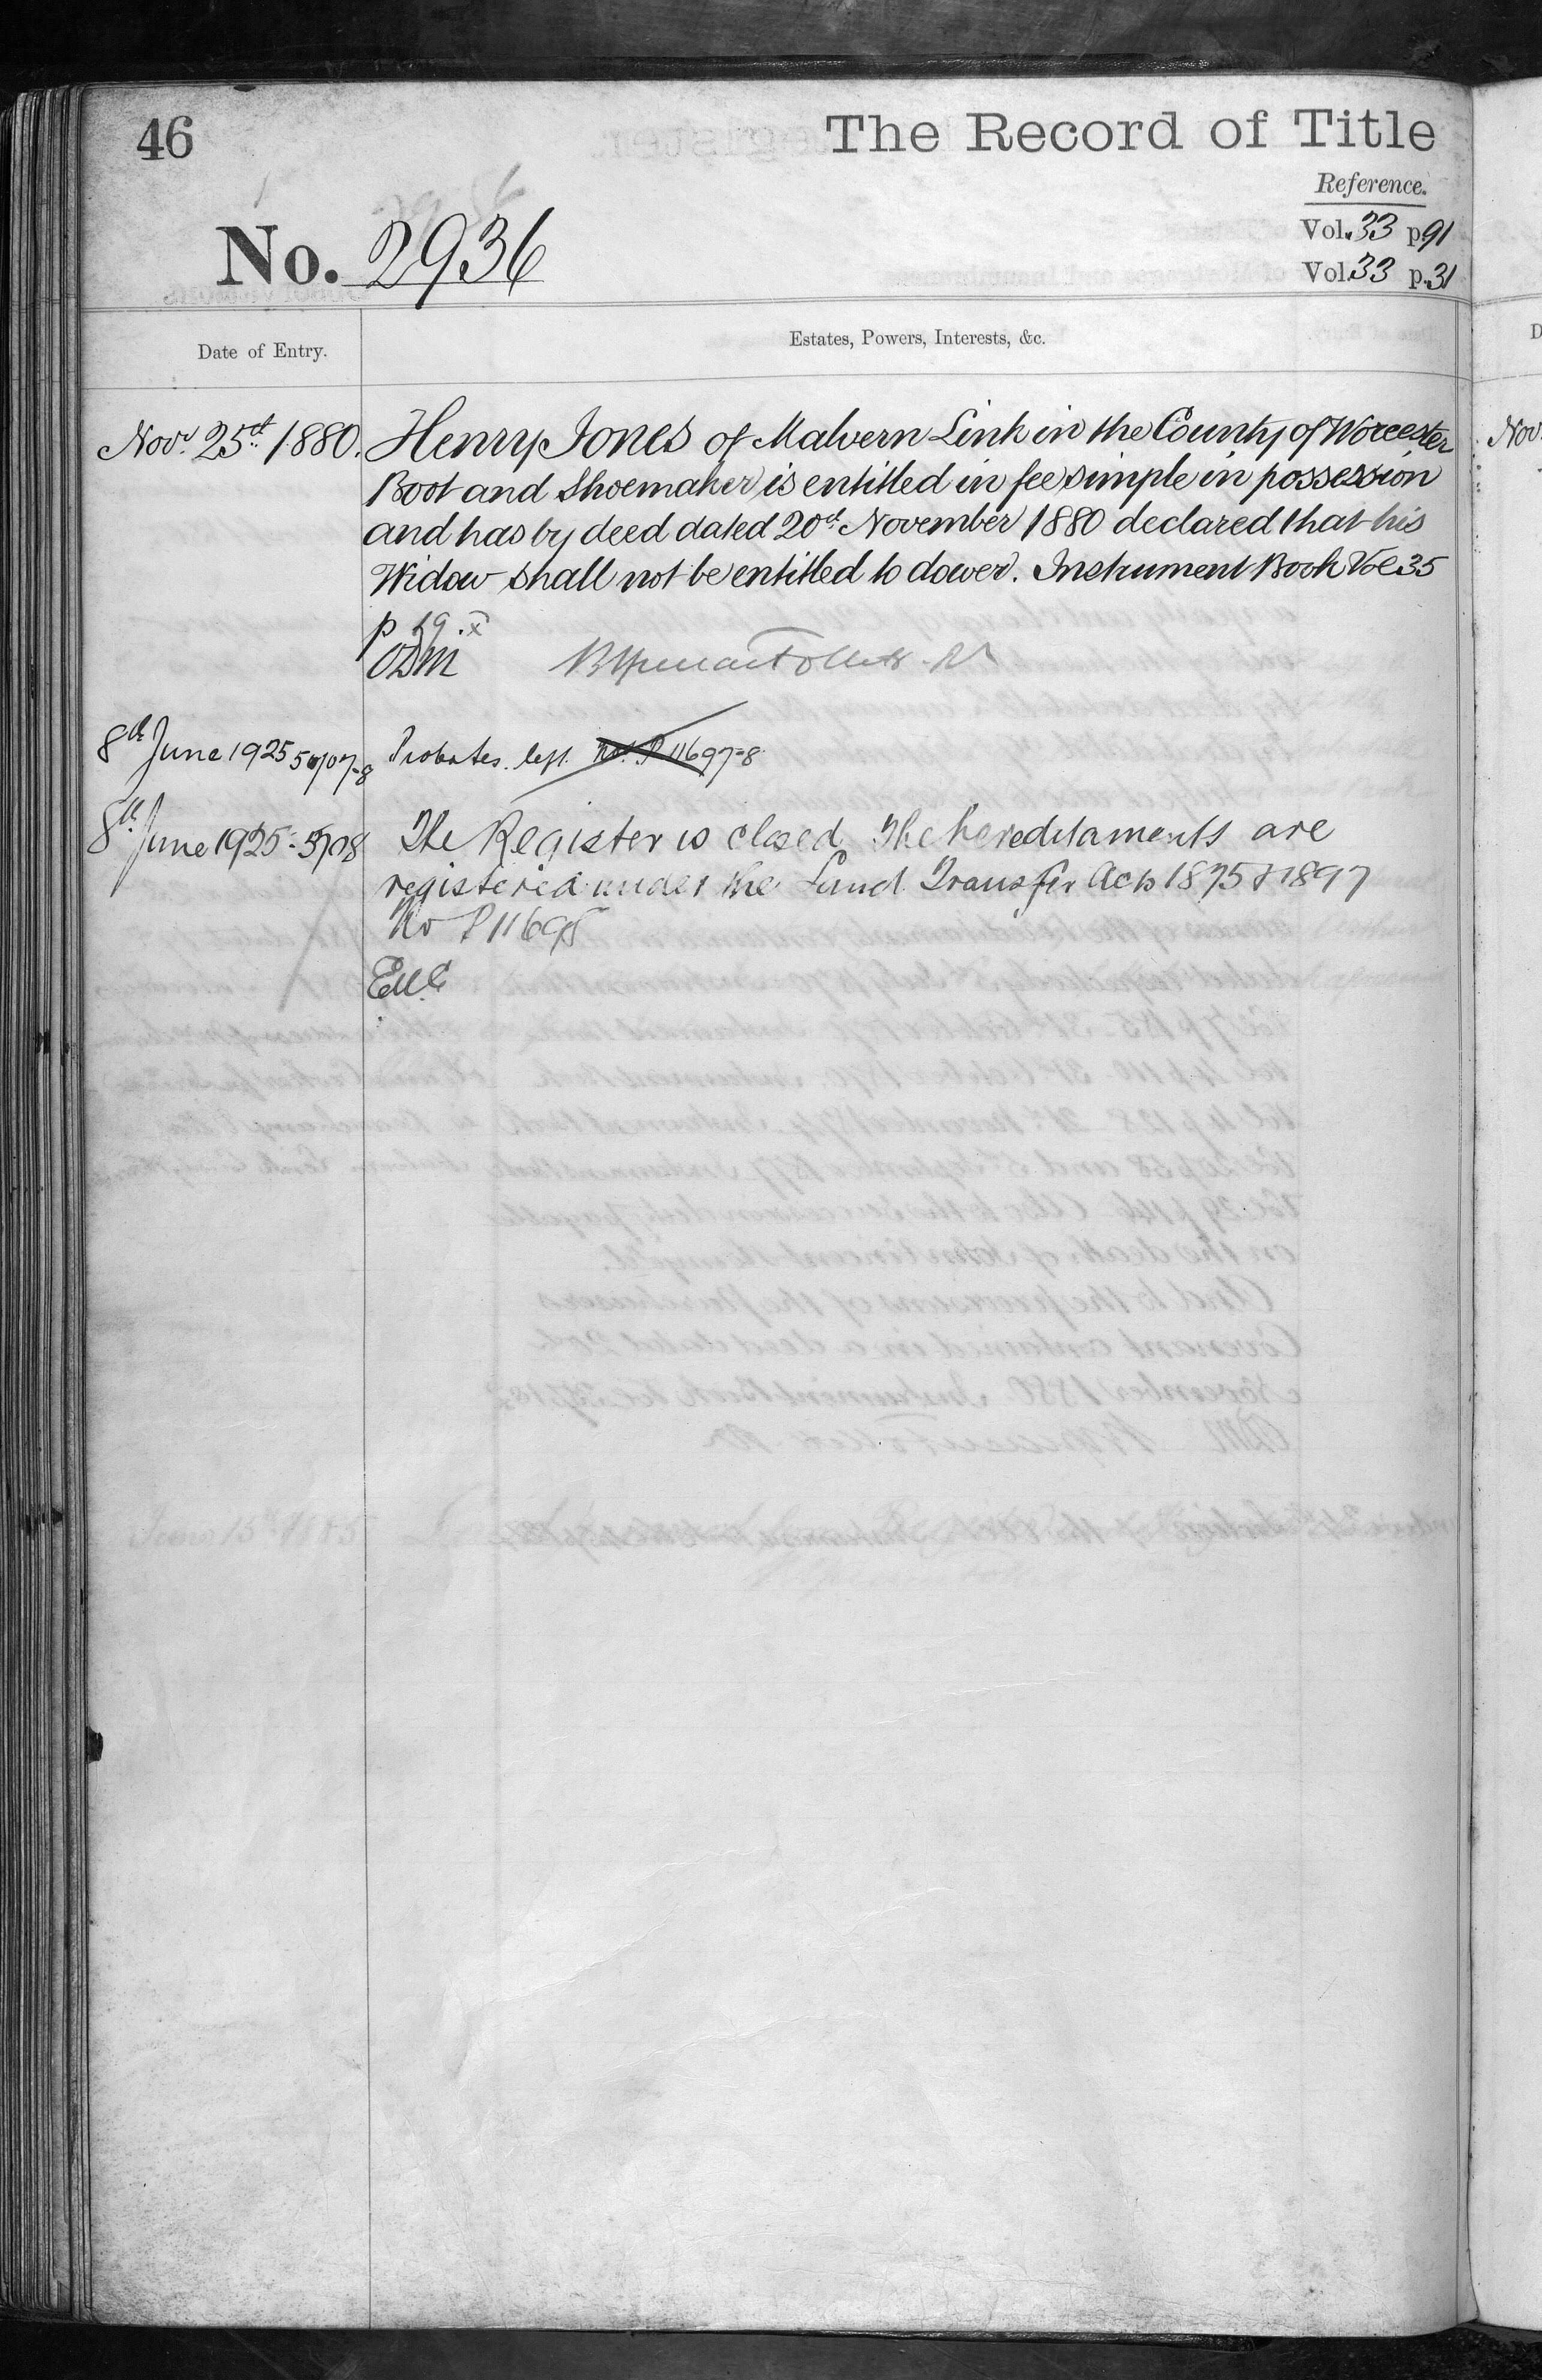 46
The Record of Title
Reference.
No. 2936
Vol. 33 p 91
Vol. 33 p. 31
Date of Entry.
Estates, Powers, Interests, &c.
Novr. 25th 1880. Henry Jones of Malvern Link in the County of Worcester
Boot and Shoemaker is entitled in fee simple in possession
and has by deed dated 20th November 1880 declared that his
Widow shall not be entitled to dower. Instrument Book Vol 35
p 19. x
ODM
8th June 1925 5707-8 Probates. left. No. P 11697-8
8th June 1925 - 5708 The Register is closed The hereditaments are
registered under the Land Transfer Acts 1875 & 1897
No P 11698
Nov.